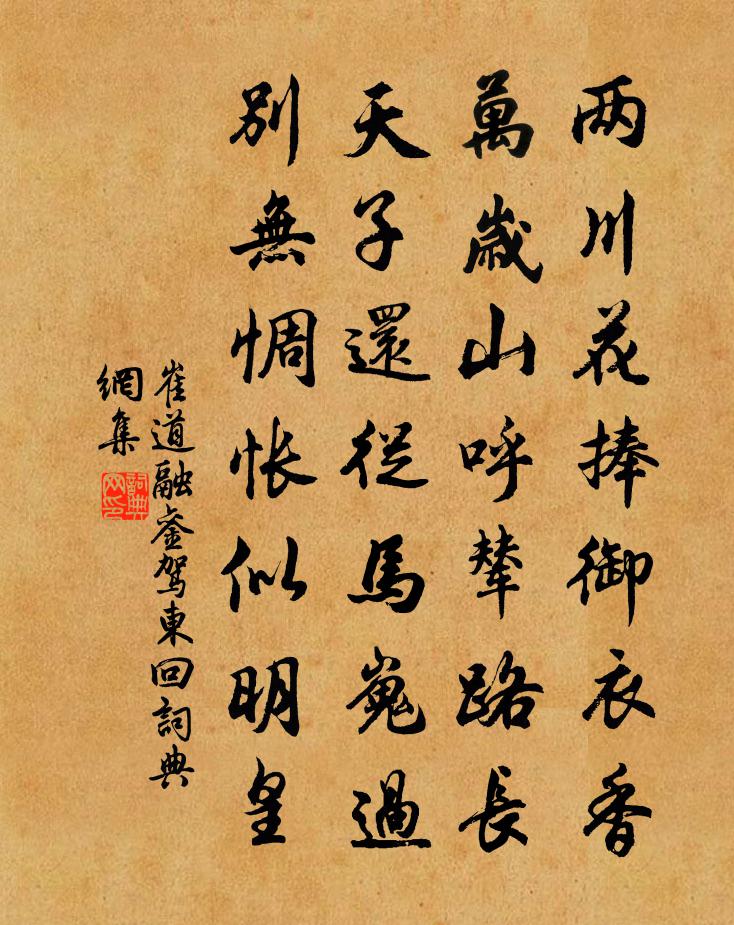 两川花捧御衣香
萬歲山呼輦路長
天子還從馬嵬過
別無惆悵似明皇
崔道融銮駕東回詞典
網集
詞典
网印